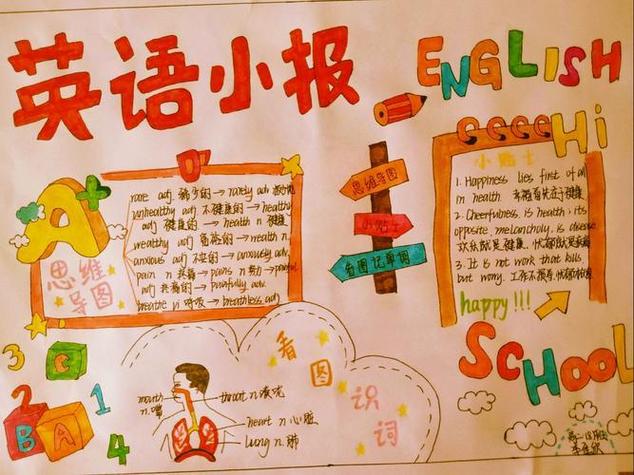 英语小报
ENGLISH
Hi
A+
思维导图
rare adj. 稀少的 → rarely adv.
unhealthy adj 不健康的 → healthy
adj 健康的 → health n 健康
wealthy adj 富裕的 → wealth n.
anxious adj 不安的 → anxiously adv.
pain n 疼痛 → pains n 努力 → painful
adj 疼痛的 → painfully adv.
breathe vi 呼吸 → breathless adj
思维导图
小贴士
看图记单词
小贴士
1. Happiness lies first of all
in health. 幸福首先在于健康
2. Cheerfulness is health; its
opposite, melancholy, is disease.
欢乐就是健康,
3. It is not work that kills,
but worry.
happy!!!
SCHOOL
看图识词
mouth
n.嘴
throat n 喉咙
heart n 心脏
lung n 肺
3
C
2
1
B
A
4